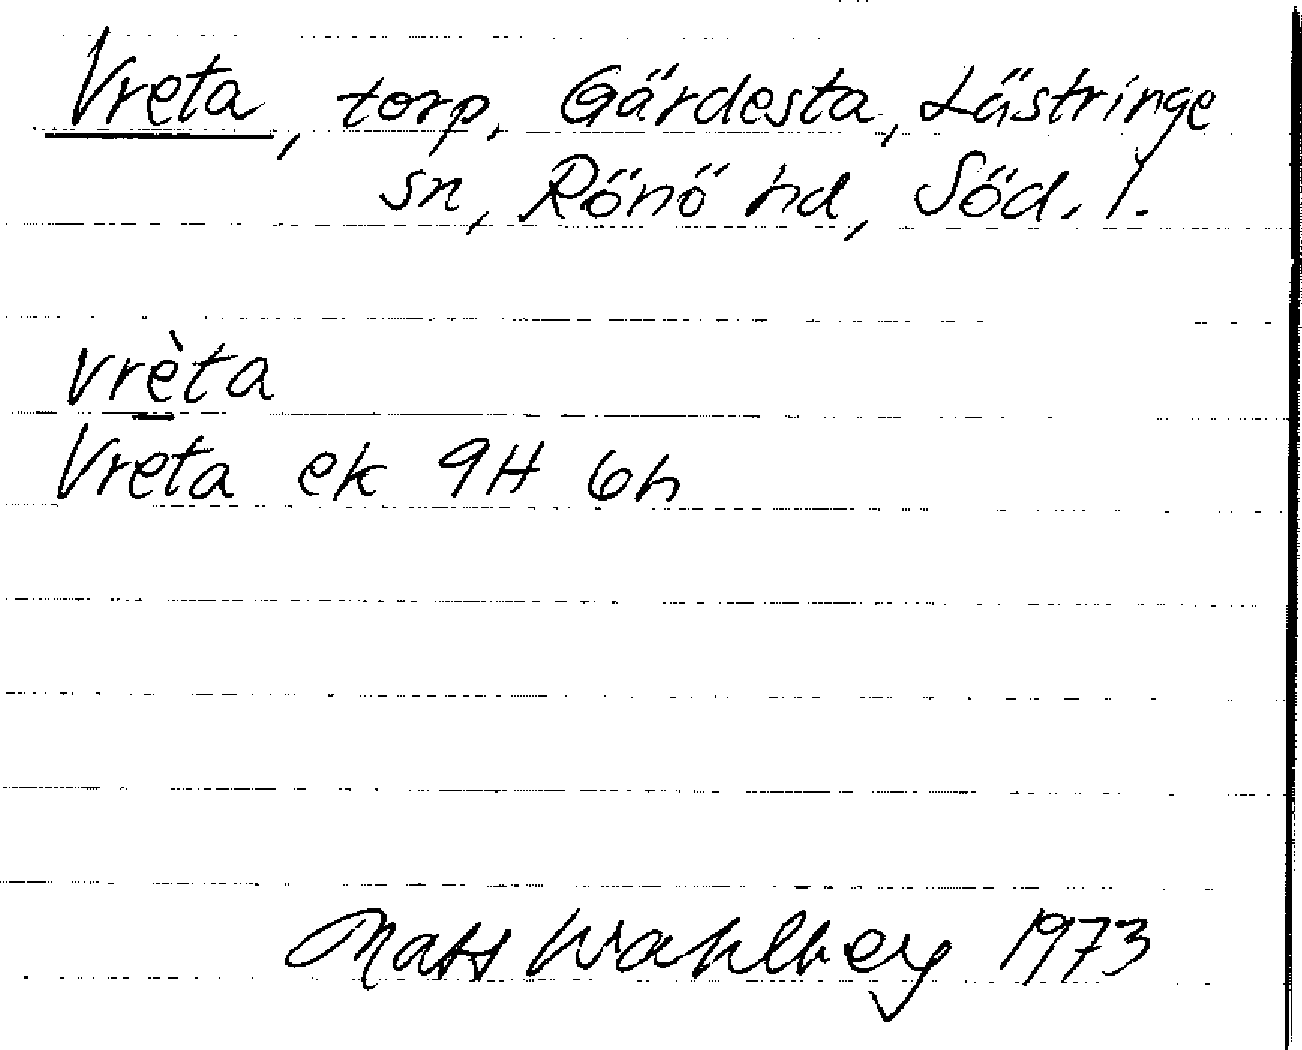 Vreta, torp, Gärdesta, Lästringe
sn, Rönö hd, Söd. l.
vrèta
Vreta ek 9H 6h
Mats Wahlberg 1973